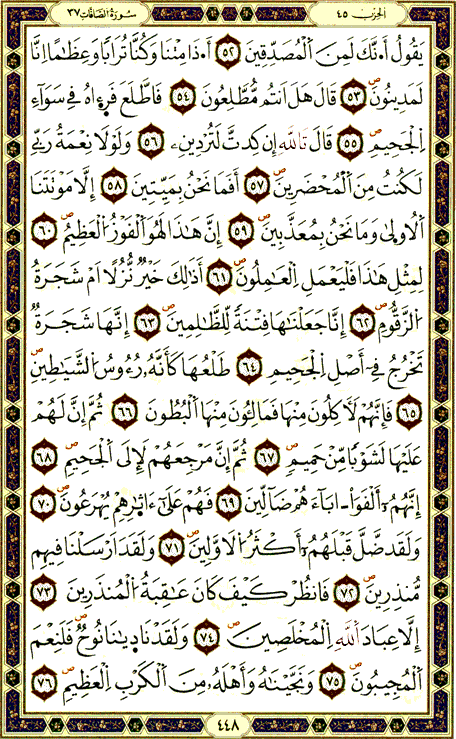 الحِزب ٤٥
سُورَةُ الصَّافَّات ٣٧
يَقُولُ أَ.نَّكَ لَمِنَ اَ۬لْمُصَدِّقِينَ ٥٢ أَ.ذَا مِتْنَا وَكُنَّا تُرَابًا وَعِظَٰمًا اِنَّا
لَمَدِينُونَ ٥٣ قَالَ هَلَ اَنتُم مُّطَّلِعُونَ ٥٤ فَاطَّلَعَ فَرِءٰاهُ فِے سَوَآءِ
اِ۬لْجَحِيمِ ٥٥ قَالَ تَاللَّهِ إِن كِدتَّ لَتُرْدِينِۦ ٥٦ وَلَوْلَا نِعْمَةُ رَبِّے
لَكُنتُ مِنَ اَ۬لْمُحْضَرِينَ ٥٧ أَفَمَا نَحْنُ بِمَيِّتِينَ ٥٨ إِلَّا مَوْتَتَنَا
اَ۬لُاولۭيٰ وَمَا نَحْنُ بِمُعَذَّبِينَ ٥٩ إِنَّ هَٰذَا لَهُوَ اَ۬لْفَوْزُ اُ۬لْعَظِيمُ ٦٠
لِمِثْلِ هَٰذَا فَلْيَعْمَلِ اِ۬لْعَٰمِلُونَ ٦١ أَذَٰلِكَ خَيْرٞ نُّزُلًا اَمْ شَجَرَةُ
اُ۬لزَّقُّومِ ٦٢ إِنَّا جَعَلْنَٰهَا فِتْنَةٗ لِّلظَّٰلِمِينَ ٦٣ إِنَّهَا شَجَرَةٞ
تَخْرُجُ فِےٓ أَصْلِ اِ۬لْجَحِيمِ ٦٤ طَلْعُهَا كَأَنَّهُۥ رُءُوسُ اُ۬لشَّيَٰطِينِ
٦٥ فَإِنَّهُمْ لَأٓكِلُونَ مِنْهَا فَمَالِـُٔونَ مِنْهَا اَ۬لْبُطُونَ ٦٦ ثُمَّ إِنَّ لَهُمْ
عَلَيْهَا لَشَوْبٗا مِّنْ حَمِيمٖ ٦٧ ثُمَّ إِنَّ مَرْجِعَهُمْ لَإِلَي اَ۬لْجَحِيمِ ٦٨
إِنَّهُمُۥٓ أَلْفَوَاْ ا۪بَآءَهُمْ ضَآلِّينَ ٦٩ فَهُمْ عَلَيٰٓ ءَاثٰ۪رِهِمْ يُهْرَعُونَ ٧٠
وَلَقَد ضَّلَّ قَبْلَهُمُۥٓ أَكْثَرُ اُ۬لَاوَّلِينَ ٧١ وَلَقَدَ اَرْسَلْنَا فِيهِم
مُّنذِرِينَ ٧٢ فَانظُرْ كَيْفَ كَانَ عَٰقِبَةُ اُ۬لْمُنذَرِينَ ٧٣
إِلَّا عِبَادَ اَ۬للَّهِ اِ۬لْمُخْلَصِينَ ٧٤ وَلَقَدْ نَاد۪يٰنَا نُوحٞ فَلَنِعْمَ
اَ۬لْمُجِيبُونَ ٧٥ وَنَجَّيْنَٰهُ وَأَهْلَهُۥ مِنَ اَ۬لْكَرْبِ اِ۬لْعَظِيمِ ٧٦
٤٤٨